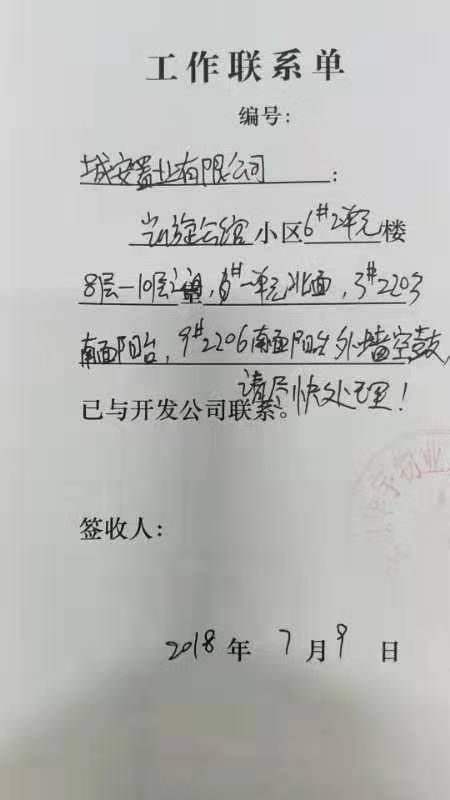 工作联系单
编号:
城安置业有限公司:
凯旋会馆小区6#2单元楼
8层-10层之间,6#一单元北面,3#2203
南面阳台,9#2206南面阳台外墙空鼓,
请尽快处理!
已与开发公司联系。
签收人:
2018年7月9日